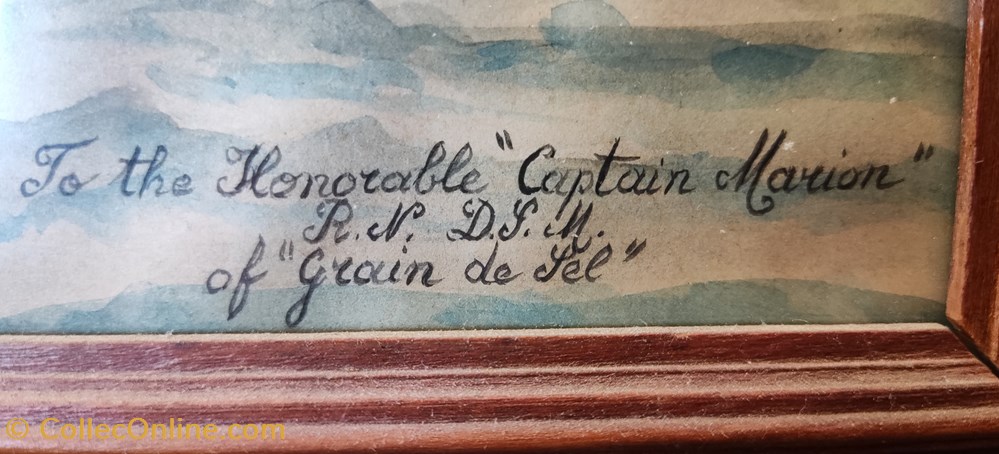 To the Honorable "Captain Marion"
R. N. D. S. M.
of "Grain de Sel"
© CollecOnline.com